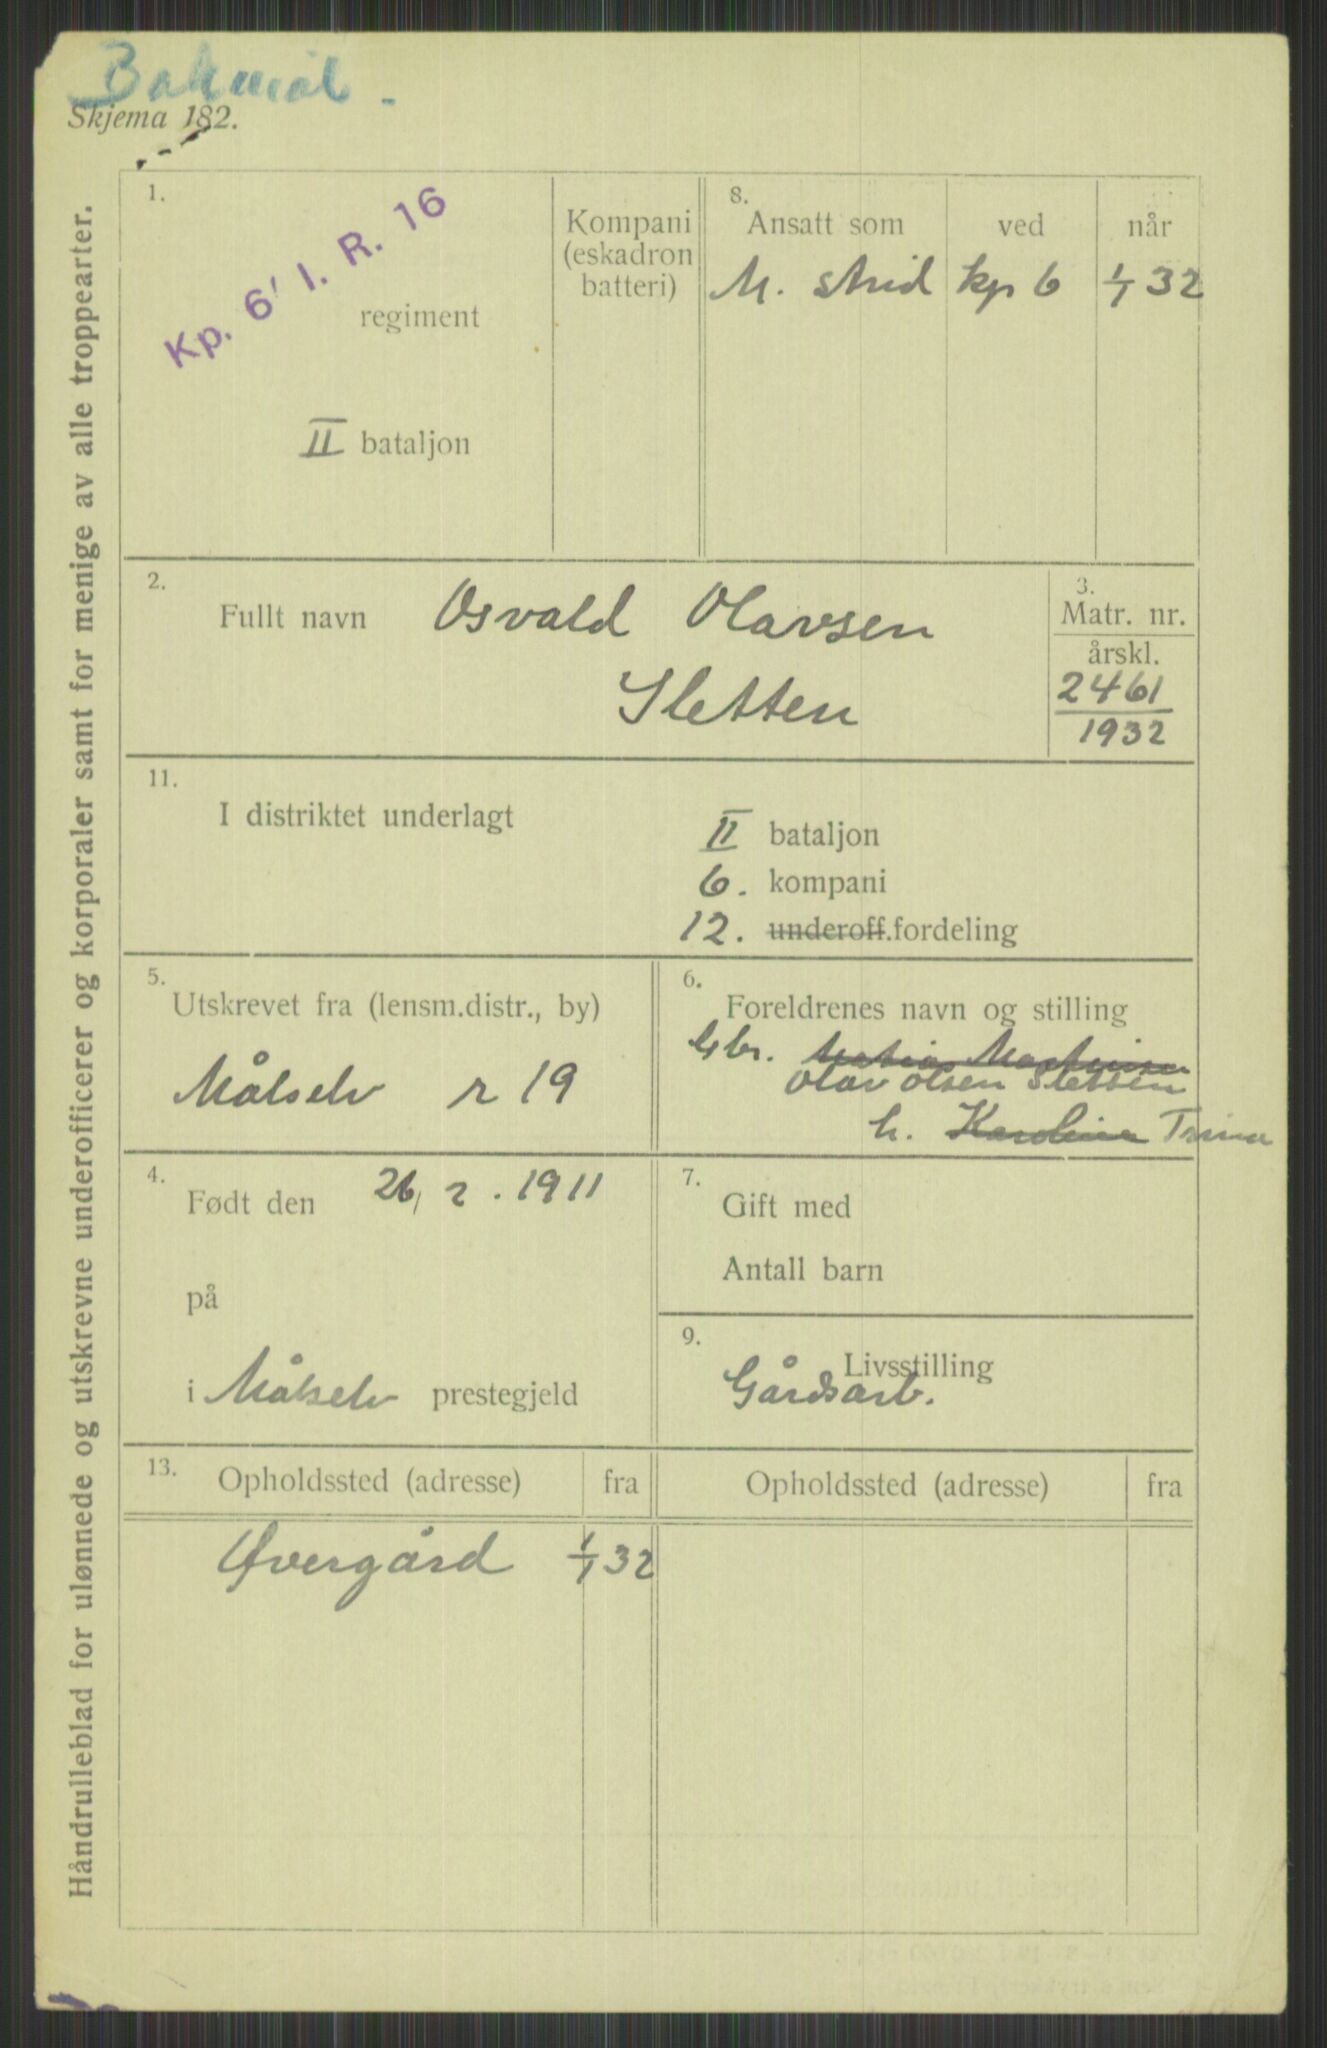 Bakmål.
Skjema 182.
Håndrulleblad for ulønnede og utskrevne underofficerer og korporaler samt for menige av alle troppearter.
1.
Kp. 6' I. R. 16
regiment
II bataljon
Kompani
(eskadron
batteri)
8.
Ansatt som ved når
M. strid kp 6 1/1 32
2.
Fullt navn Osvald Olavsen
Sletten
3.
Matr. nr.
årskl.
2461
1932
11.
I distriktet underlagt
II bataljon
6. kompani
12. underoff.fordeling
5.
Utskrevet fra (lensm.distr., by)
Målselv r 19
6.
Foreldrenes navn og stilling
Gbr. Martinsen
Olav Olsen Sletten
h. Karoline Trina
4.
Født den 26/2. 1911
på
i Målselv prestegjeld
7.
Gift med
Antall barn
9.
Livsstilling
Gårdsarb.
13.
Opholdssted (adresse) fra Opholdssted (adresse) fra
Øvergård 1/1 32